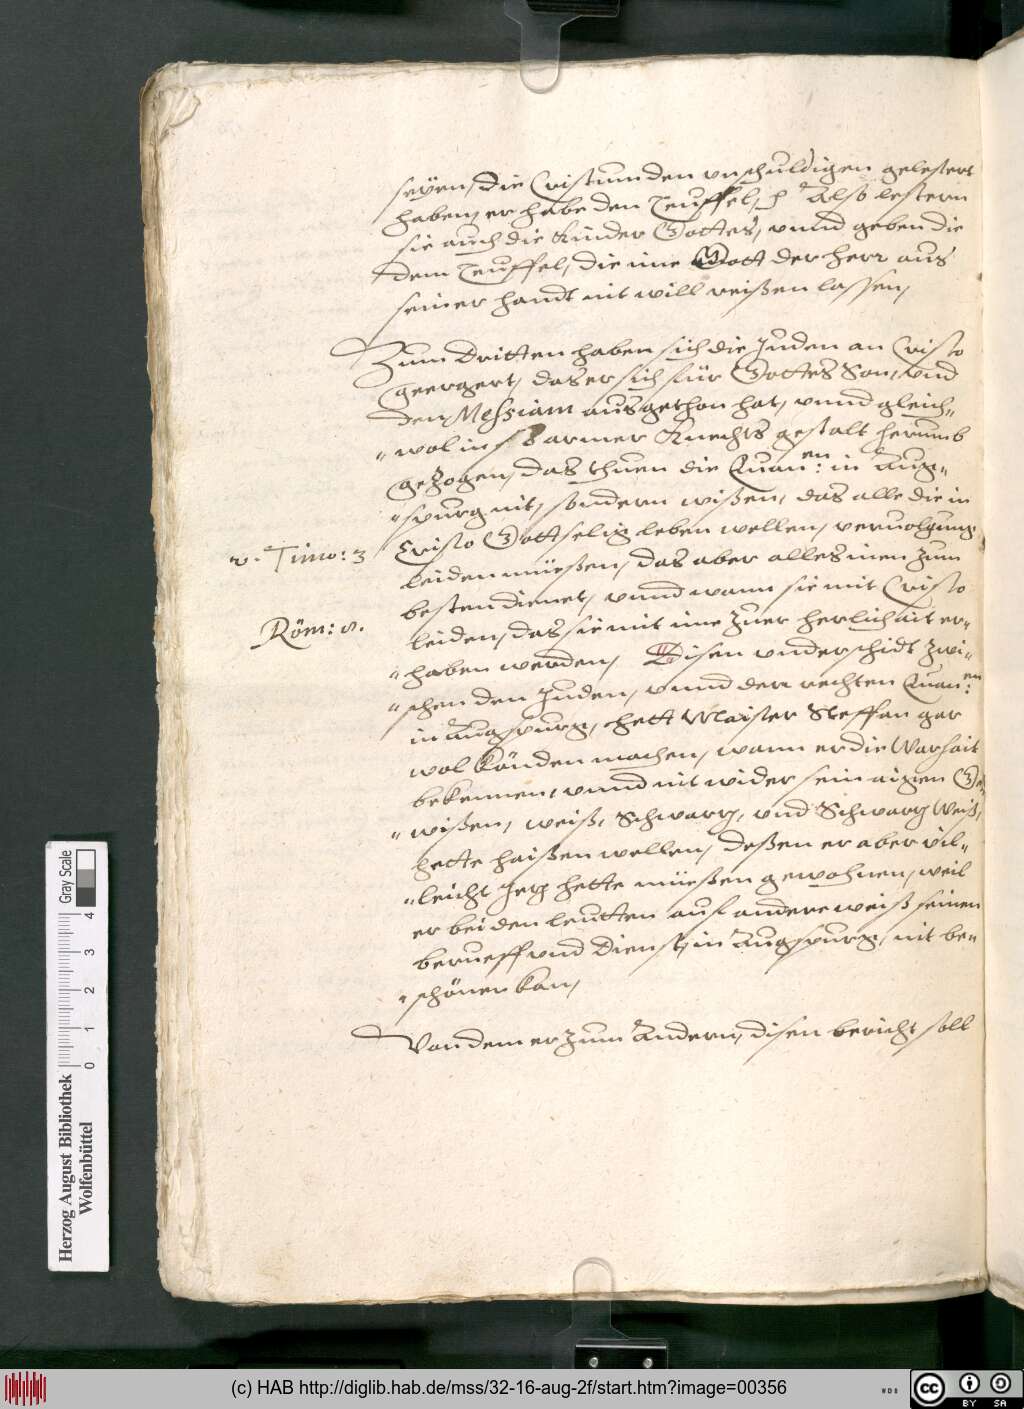 seÿen, die Cristum den vnschuldigen gelestert
haben, er habe den Teuffel, ꝛc Also lestern
sie auch die Kinder Gottes, vnnd geben die
dem Teuffel, die ime Gott der herr aus
seiner handt nit will reißen lassen,
Zum Dritten haben sich die Juden an Cristo
geergert, das er sich für Gottes Son, vnd
den Messiam ausgethon hat, vnnd gleich„
„wol in armer Knechts gestalt herumb
gezogen, das thuen die Euan:en in Aug„
„spurg nit, sondern wißen, das alle die in
Cristo Gottselig leben wellen, veruolgung
2. Timo: 3
leiden müeßen, das aber alles inen zum
besten dienet, vnnd wann sie mit Cristo
Röm: 8.
leiden, das sie mit ime zuer herlichait er„
„haben werden, Disen vnderschidt zwi„
„schen den Juden, vnnd den rechten Euan:en
in Augspurg, hett Maister Steffan gar
wol könden machen, wann er die Warhait
bekennen, vnnd nit wider sein aigen Ge„
„wißen, weiß, Schwartz, vnd Schwartz Weiß,
hette haißen wellen, deßen er aber vil„
„leicht Jetz hette müeßen gewohnen, weil
er bei den leutten auf andere weiß seinen
berueff vnd Dienst, in Augspurg, nit be„
„schönen kan,
Von dem er zum Andern, disen bericht soll
Herzog August Bibliothek
Wolfenbüttel
0 1 2 3 4
Gray Scale
(c) HAB http://diglib.hab.de/mss/32-16-aug-2f/start.htm?image=00356
WDB
cc BY SA